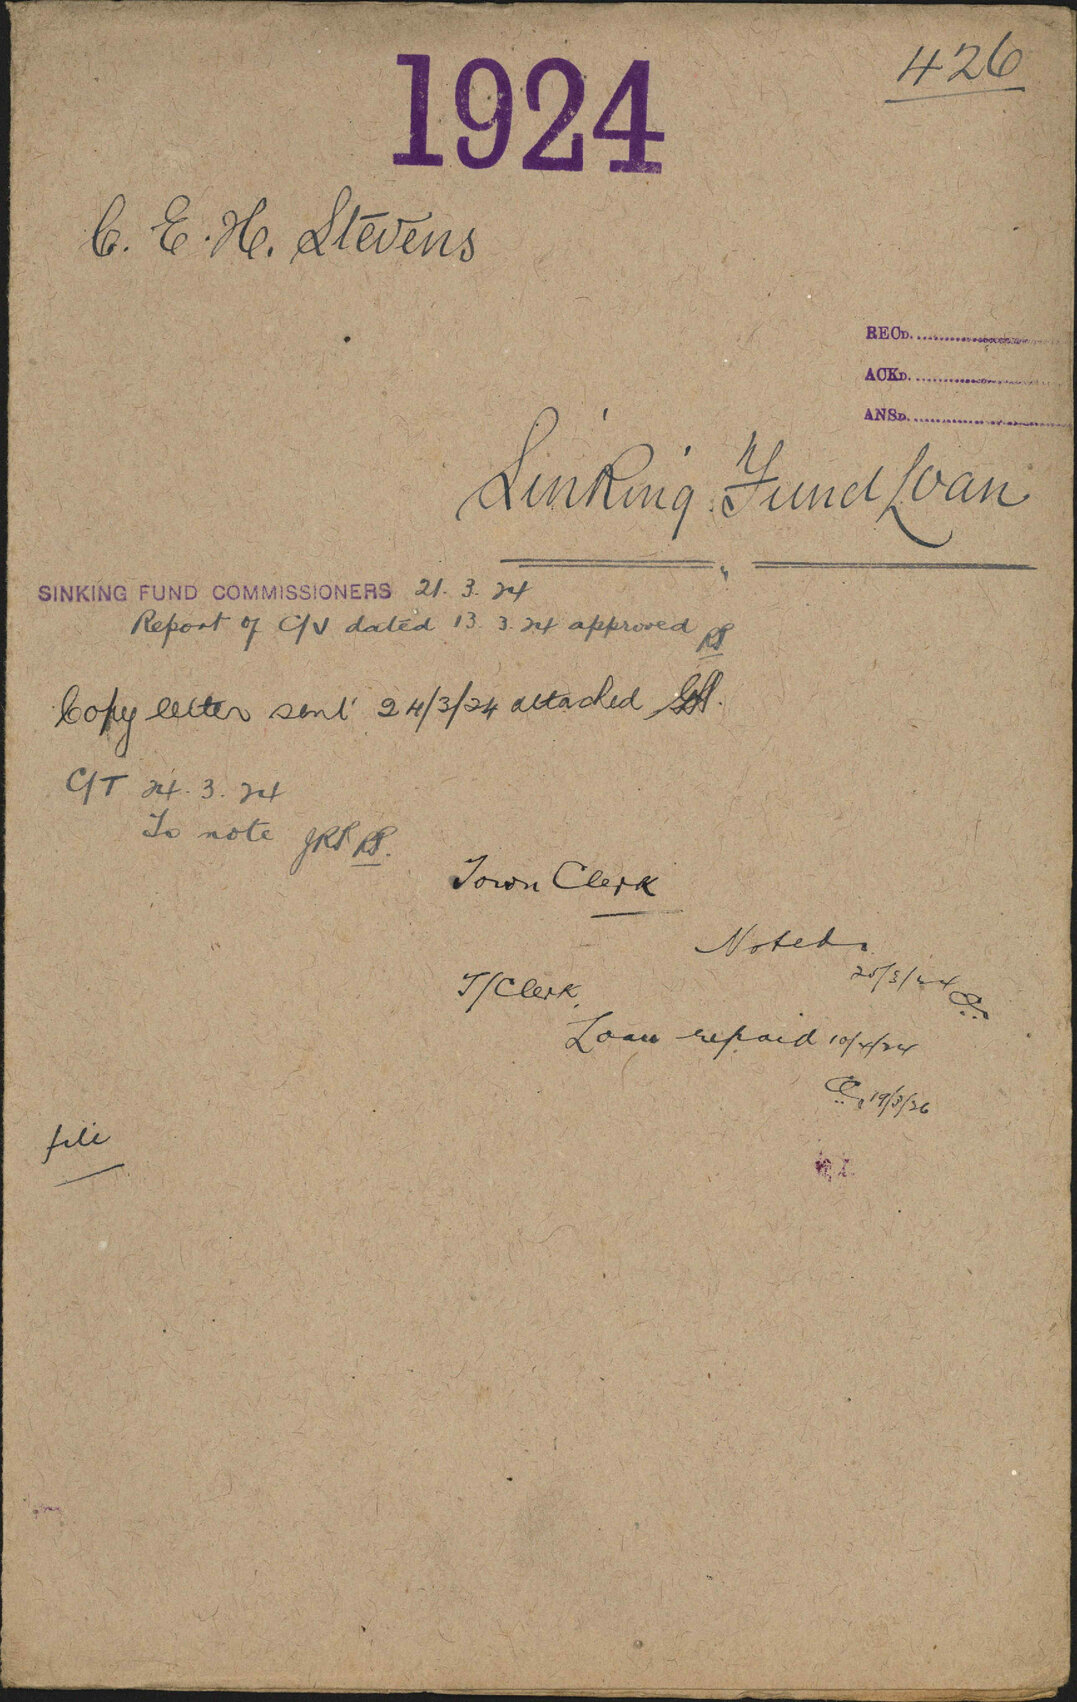 1924
426
C. E. H. Stevens
RECD.
ACKD.
ANSD.
Sinking Fund Loan
SINKING FUND COMMISSIONERS 21. 3. 24
Report of C/V dated 13. 3. 24 approved
Copy letter sent 24/3/24 attached
C/T 24. 3. 24
To note
Town Clerk
Noted
T/Clerk
Loan repaid 10/4/24
19/3/26
file